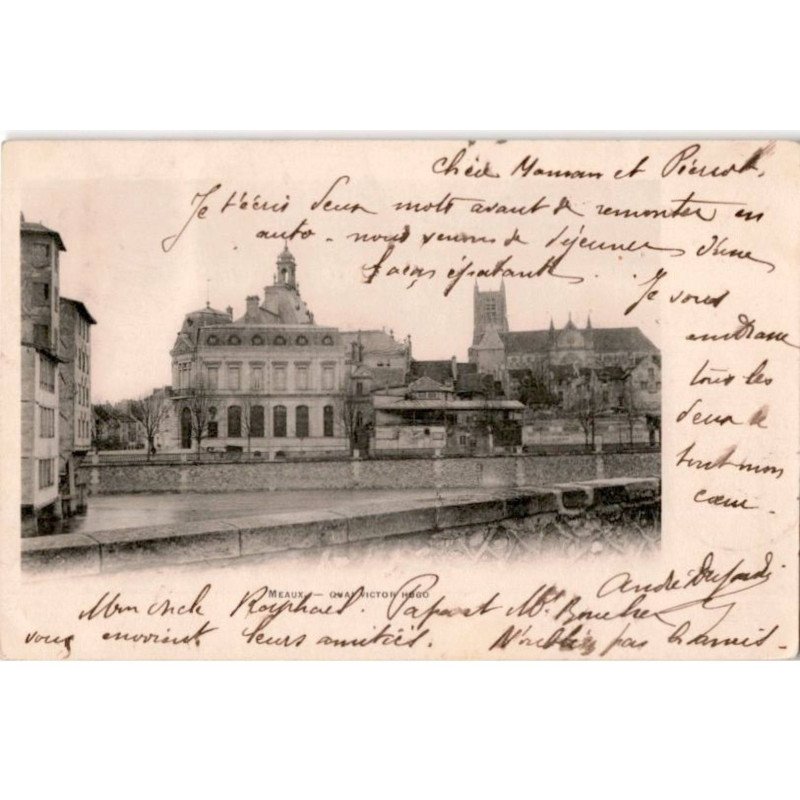 chèe Maman et Pierrot.
Je t'écris deux mots avant de remonter en
auto. nous venons de déjeuner d'une
façon épatante.
Je vous
embrasse
tous les
deux de
tout mon
cœur.
André
MEAUX. — QUAI VICTOR HUGO
Mon oncle Raphael. Papa et Mr. Boucher
vous envoient leurs amitiés. N'oublie pas